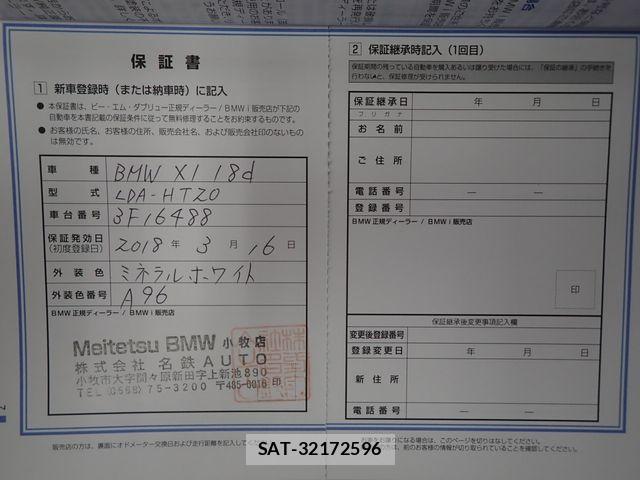 保証書
1 新車登録時（または納車時）に記入
● 本保証書は、ビー・エム・ダブリュー正規ディーラー / BMW i 販売店が下記の
自動車を本書記載の保証条件に従って無料修理することをお約束するものです。
● お客様の氏名、お客様の住所、販売会社名、および販売会社印のないもの
は無効です。
車種 BMW X1 18d
型式 LDA-HT20
車台番号 3F16488
保証発効日
(初度登録日) 2018 年 3 月 16 日
外装色 ミネラルホワイト
外装色番号 A96
BMW 正規ディーラー / BMW i 販売店
Meitetsu BMW 小牧店
株式会社 名鉄AUTO
小牧市大字間々原新田字上新池890
TEL (0568) 75-3200 〒485-0016 印
販売店の方は、裏面にオドメーター交換日および走行距離を記入してく
2 保証継承時記入（1回目）
保証期間の残っている自動車を購入あるいは譲り受けた場合には、「保証の継承」の手続きを
行わないと、保証修理が受けられません。
保証継承日 年 月 日
フリガナ
お名前
ご住所
電話番号 ― ―
登録番号
BMW 正規ディーラー / BMW i 販売店
印
保証継承後変更事項記入欄
変更後登録番号
登録変更日 年 月 日
新住所
電話番号 ― ―
お車をお譲りになる場合は、このページを切りはなしてください。
の方は、前のお客様の情報が切り取られていることを確認してください。
SAT-32172596